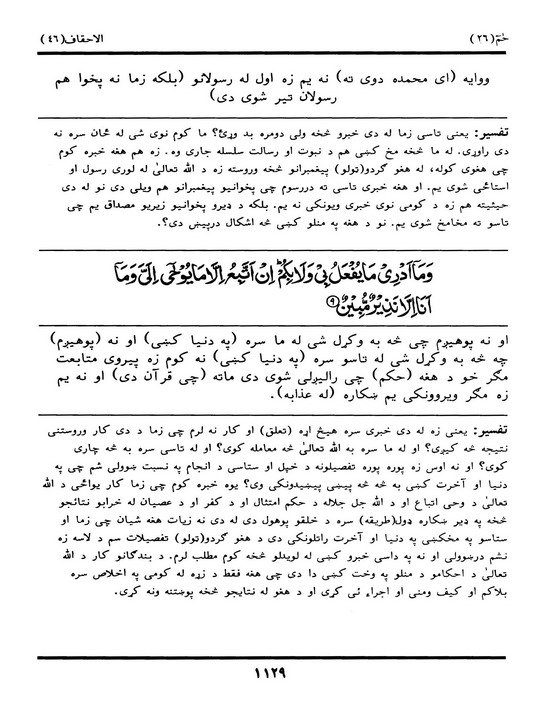 حٰمٓ (٢٦) الاحقاف (٤٦)
ووایه (ای محمده دوی ته) نه یم زه اول له رسولانو (بلکه زما نه پخوا هم
رسولان تیر شوی دی)
تفسیر: یعنی تاسی زما له دی خبرو څخه ولی دومره بد وړئ؟ ما کوم نوی شی له ځان سره نه
دی راوړی. له ما څخه مخ کښی هم د نبوت او رسالت سلسله جاری وه. زه هم هغه خبره کوم
چی هغوی کوله، له هغو گردو(ټولو) پیغمبرانو څخه وروسته زه د الله تعالیٰ له لوری رسول او
استاځی شوی یم. او هغه خبری تاسی ته دررسوم چی پخوانیو پیغمبرانو هم ویلی دی نو له دی
حیثیته هم زه د کومی نوی خبری ویونکی نه یم. بلکه د ډیرو پخوانیو زیریو مصداق یم چی
تاسو ته مخامخ شوی یم. نو د هغه په منلو کښی څه اشکال درپیښ دی؟.
وَمَآ اَدْرِیْ مَا یُفْعَلُ بِیْ وَلَا بِکُمْ ؕ اِنْ اَتَّبِعُ اِلَّا مَا یُوْحٰٓی اِلَیَّ وَمَآ
اَنَا اِلَّا نَذِیْرٌ مُّبِیْنٌ ﴿٩﴾
او نه پوهیږم چی څه به وکړل شی له ما سره (په دنیا کښی) او نه (پوهیږم)
چه څه به وکړل شی له تاسو سره (په دنیا کښی) نه کوم زه پیروی متابعت
مگر خو د هغه (حکم) چی رالیږلی شوی دی ماته (چی قرآن دی) او نه یم
زه مگر ویروونکی یم ښکاره (له عذابه).
تفسیر: یعنی زه له دی خبری سره هیڅ اړه (تعلق) او کار نه لرم چی زما د دی کار وروستنی
نتیجه څه کیږی؟ او له ما سره به الله تعالیٰ څه معامله کوی؟ او له تاسی سره به څه چاری
کوی؟ او نه اوس زه پوره پوره تفصیلونه د خپل او ستاسی د انجام په نسبت ښوولی شم چی په
دنیا او آخرت کښی به څه څه پیښی پیښیدونکی وی؟ یوه خبره کوم چی زما کار یواځی د الله
تعالیٰ د وحی اتباع او د الله جل جلاله د حکم امتثال او د کفر او د عصیان له خرابو نتائجو
څخه په ډیر ښکاره ډول(طریقه) سره د خلقو پوهول دی له دی نه زیات هغه شیان چی زما او
ستاسو په مخکښی په دنیا او آخرت راتلونکی دی د هغو گردو(ټولو) تفصیلات سم د لاسه زه
نشم درښوولی او نه په داسی خبرو کښی له لویدلو څخه کوم مطلب لرم. د بندگانو کار د الله
تعالیٰ د احکامو د منلو په وخت کښی دا دی چی هغه فقط د زړه له کومی په اخلاص سره
بلاکم او کیف ومنی او اجراء ئی کړی او د هغو له نتایجو څخه پوښتنه ونه کړی.
١١٢٩